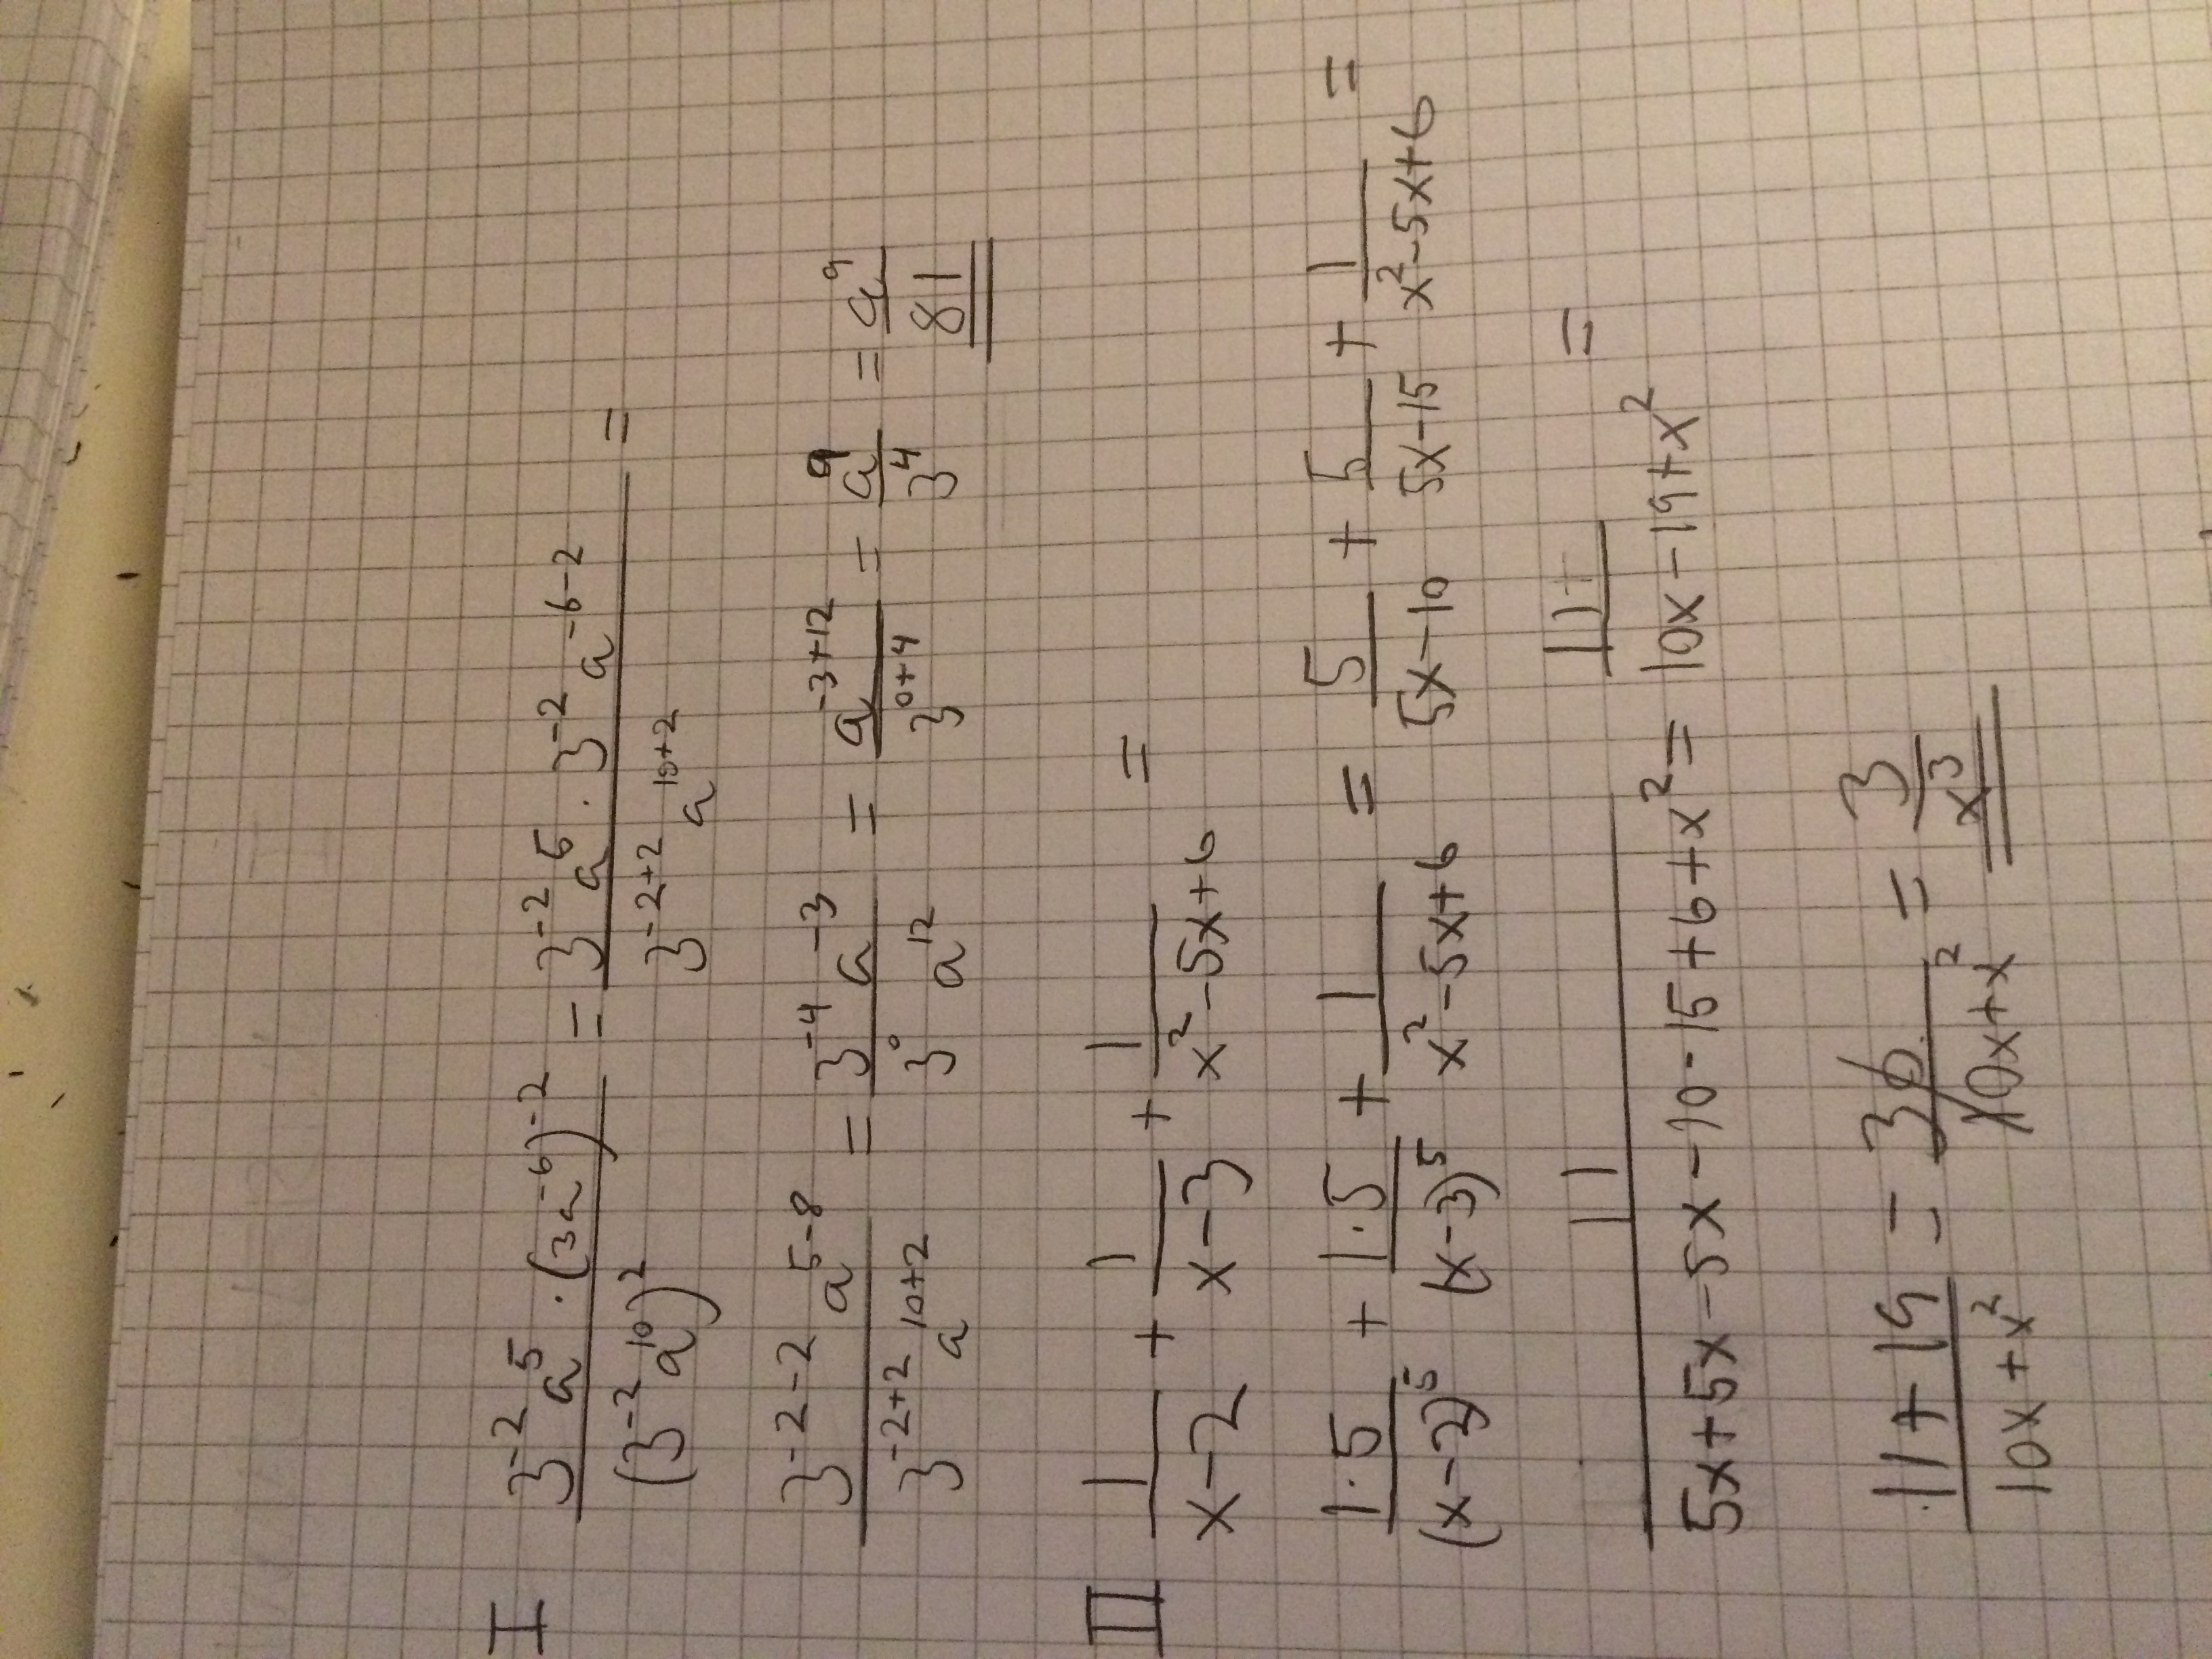 I  (3^-2 a^5 · (3a^-6)^-2) / (3^-2 a^10)^2 = (3^-2 a^5 · 3^-2 a^-6-2) / (3^-2+2 a^10+2) =
(3^-2-2 a^5-8) / (3^-2+2 a^10+2) = (3^-4 a^-3) / (3^0 a^12) = a^-3+12 / 3^0+4 = a^9 / 3^4 = a^9 / 81
II  1/(x-2) + 1/(x-3) + 1/(x^2-5x+6) =
1·5/(x-2)5 + 1·5/(x-3)5 + 1/(x^2-5x+6) = 5/(5x-10) + 5/(5x-15) + 1/(x^2-5x+6) =
11/(5x+5x-5x-10-15+6+x^2) = 11/(10x-19+x^2) =
(11+19)/(10x+x^2) = 30/(10x+x^2) = 3/x^3